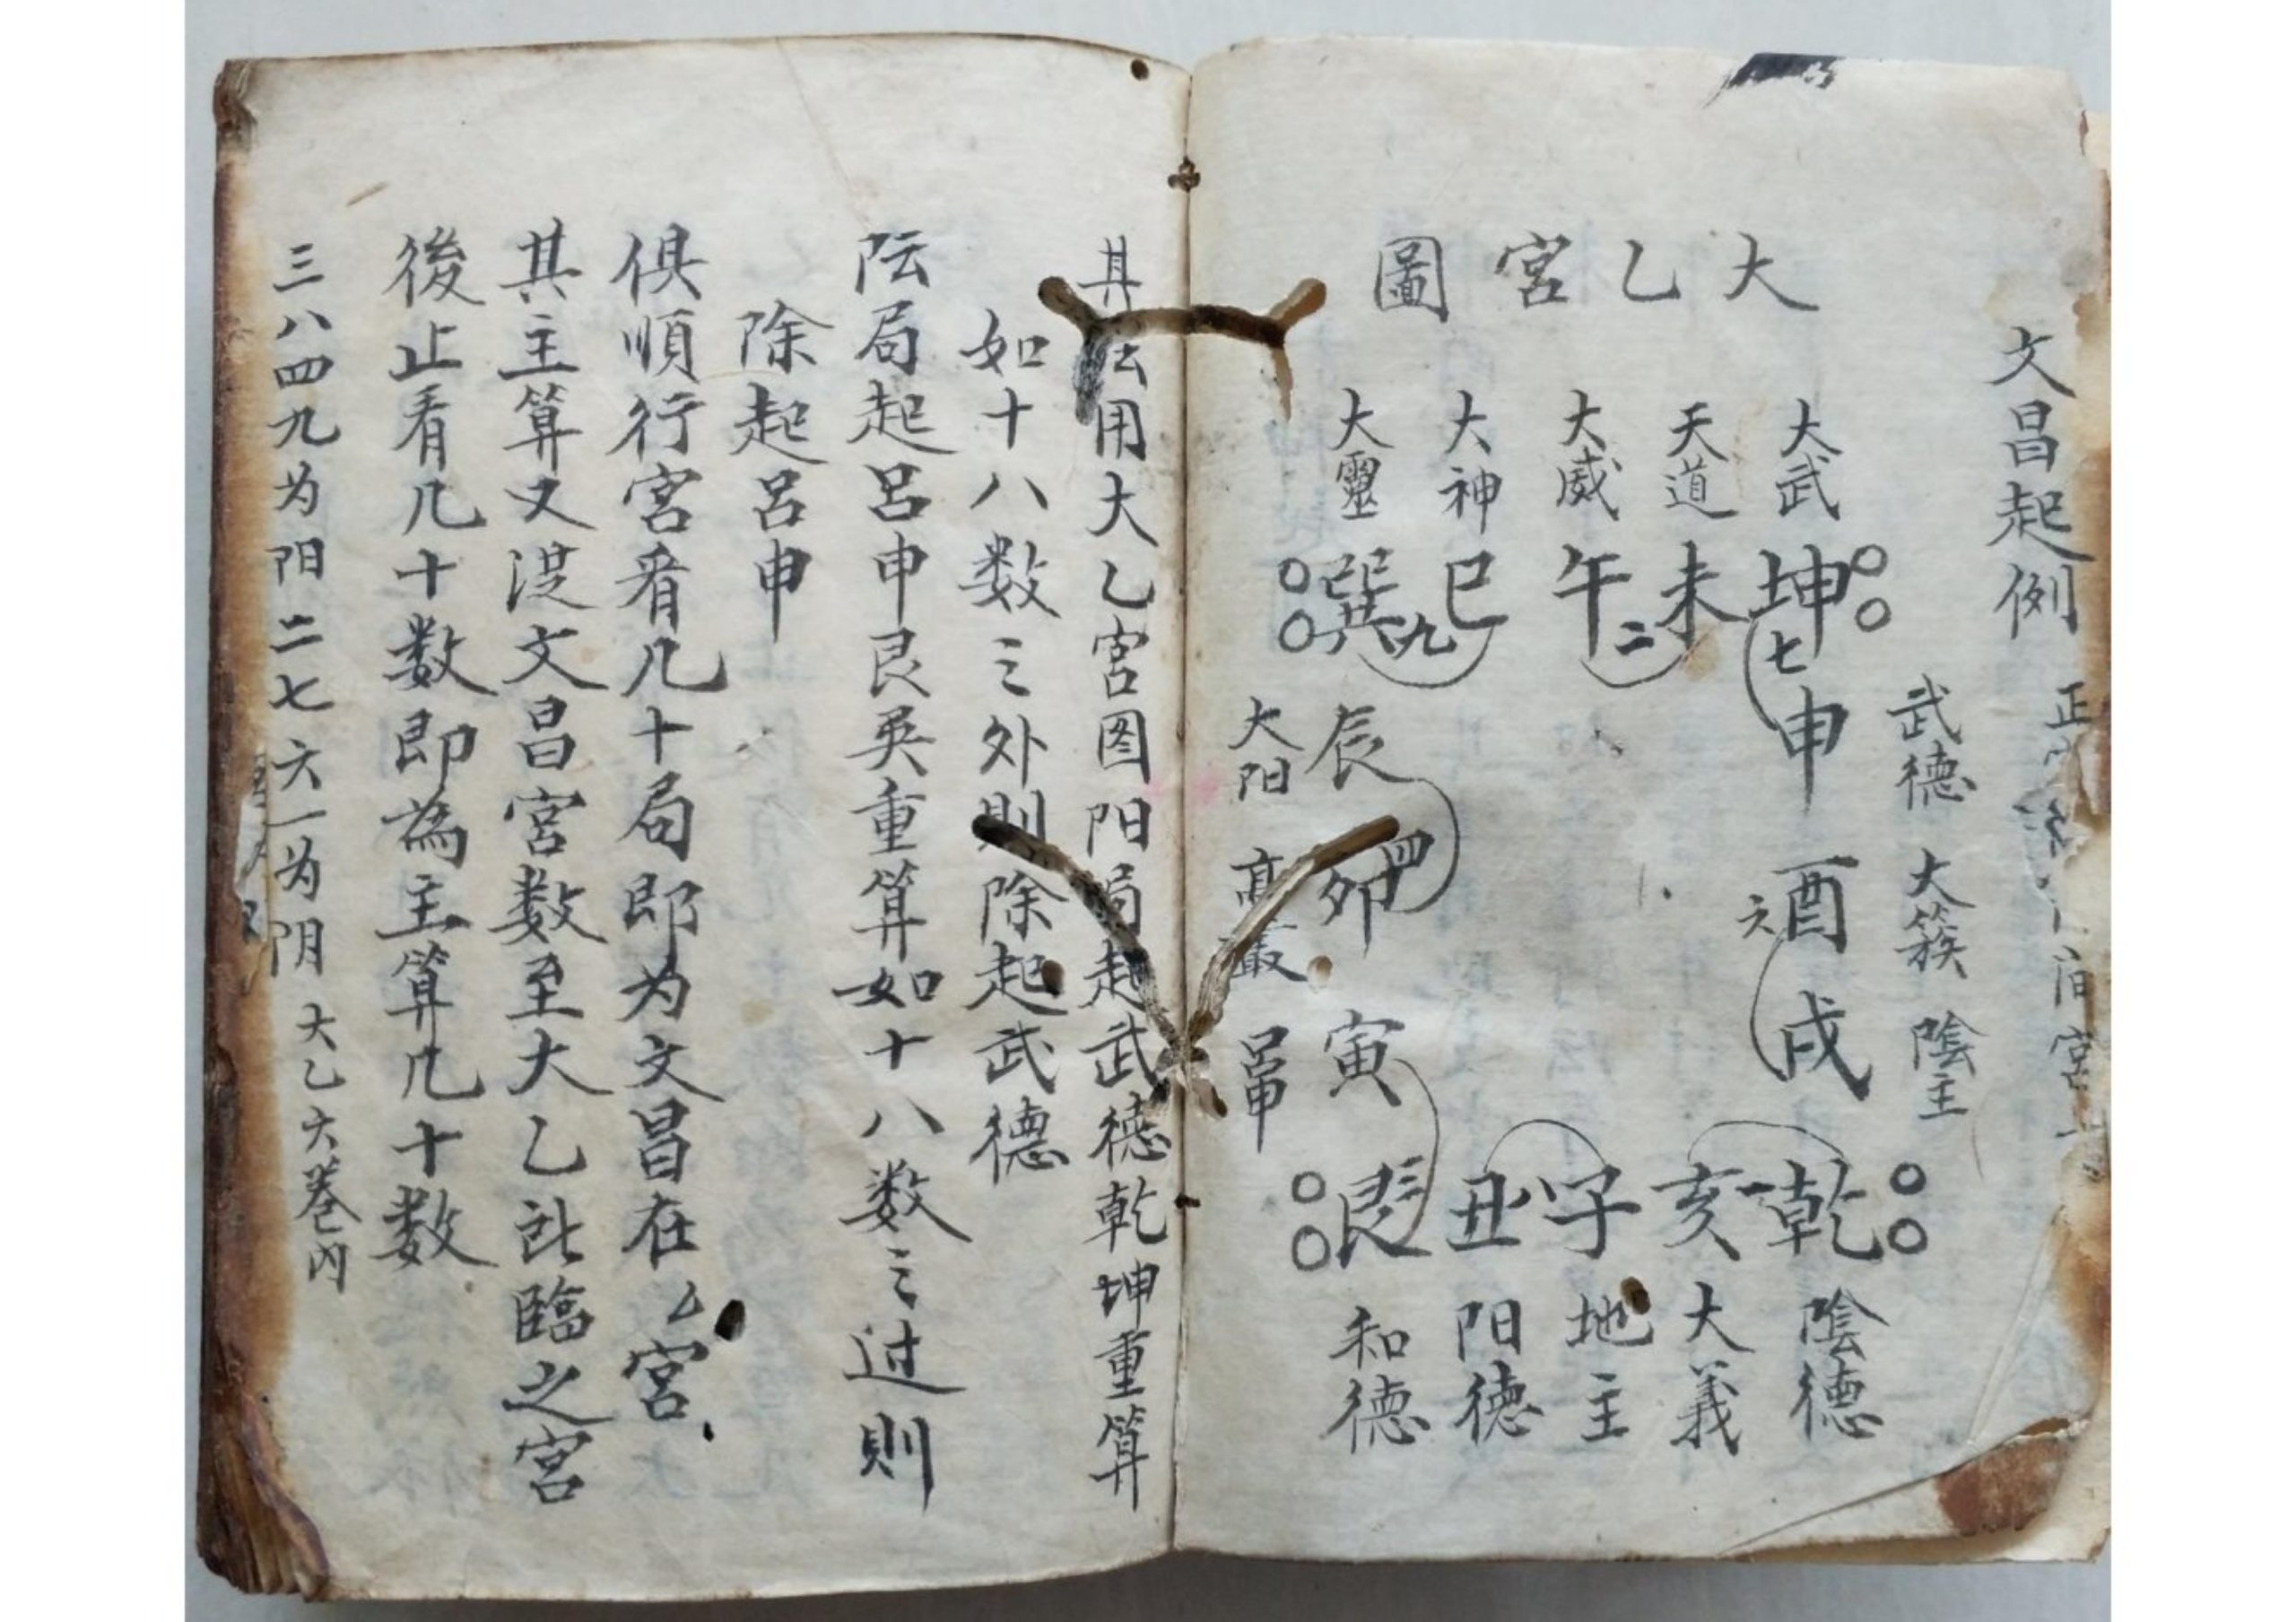 文昌起例 正
間宮
大乙宮圖
大武 天道 大威 大神 大靈
坤 未 午 巳 巽
七 二 九
武德 申 辰 大阳
大簇 酉 六 四 卯 高叢
陰主 戌 寅 呂申
乾 一 亥 子 丑 艮 三
陰德 大義 地主 阳德 和德
其法用大乙宮图阳局起武德乾坤重算
如十八数之外則除起武德
阮局起呂申艮巽重算如十八数之过則
除起呂申
俱順行宮看几十局即为文昌在厶宮
其主算又從文昌宮数至大乙所臨之宮
後止看几十数即為主算几十数
三八四九为阳二七六一为阴 大乙六卷内